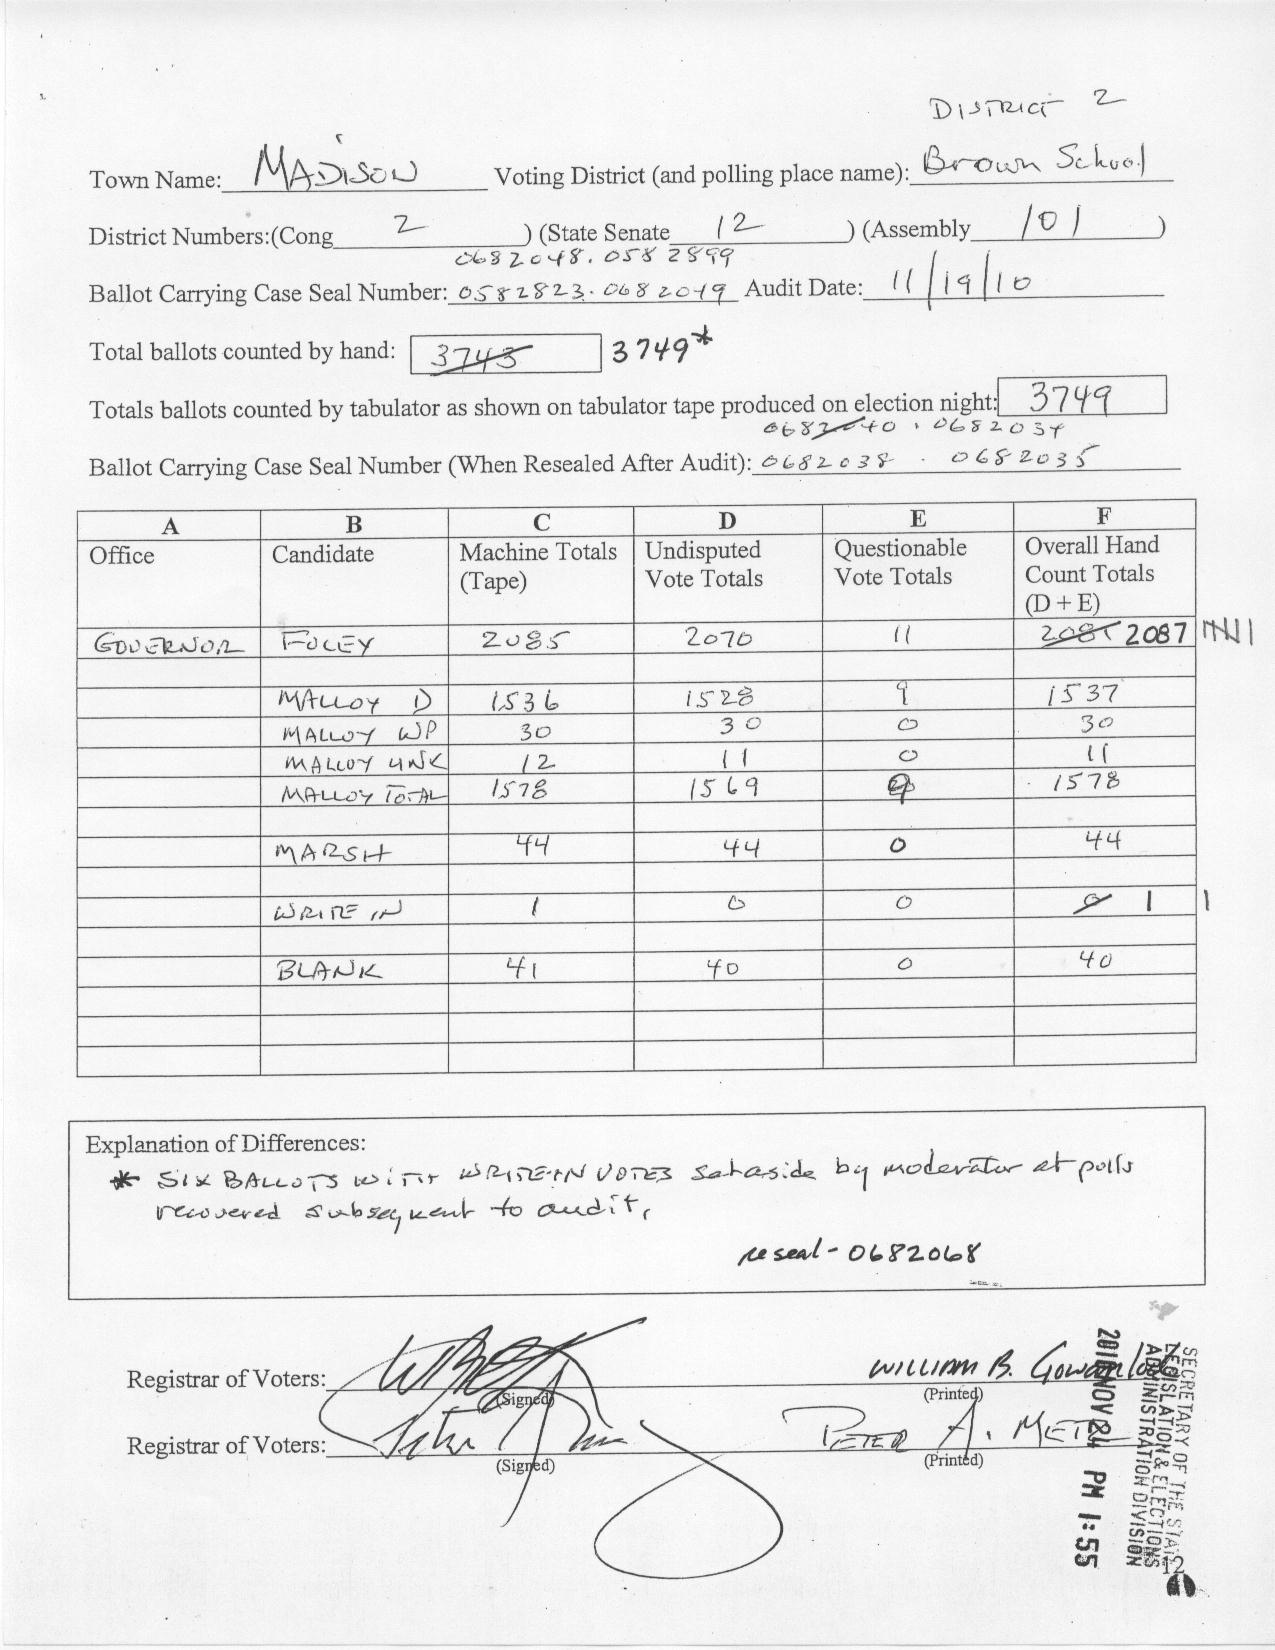 DISTRICT 2
Town Name: MADISON Voting District (and polling place name): Brown School
District Numbers:(Cong 2 ) (State Senate 12 ) (Assembly 101 )
0682048. 0582899
Ballot Carrying Case Seal Number: 0582823. 0682049 Audit Date: 11/19/10
Total ballots counted by hand: 3743 3749*
Totals ballots counted by tabulator as shown on tabulator tape produced on election night: 3749
0682040 , 0682034
Ballot Carrying Case Seal Number (When Resealed After Audit): 0682038 . 0682035
A B C D E F
Office Candidate Machine Totals (Tape) Undisputed Vote Totals Questionable Vote Totals Overall Hand Count Totals (D + E)
GOVERNOR FOLEY 2085 2070 11 2081 2087
MALLOY D 1536 1528 9 1537
MALLOY WP 30 30 0 30
MALLOY UNK 12 11 0 11
MALLOY TOTAL 1578 1569 9 1578
MARSH 44 44 0 44
WRITE IN 1 0 0 0 1 1
BLANK 41 40 0 40
Explanation of Differences:
* SIX BALLOTS WITH WRITE-IN VOTES set aside by moderator at polls
recovered subsequent to audit.
reseal - 0682068
Registrar of Voters: WILLIAM B.
(Signed) (Printed)
Registrar of Voters: PETER A.
(Signed) (Printed)
SECRETARY OF THE STATE
LEGISLATION & ELECTIONS
ADMINISTRATION DIVISION
2010 NOV 24 PM 1:55
12